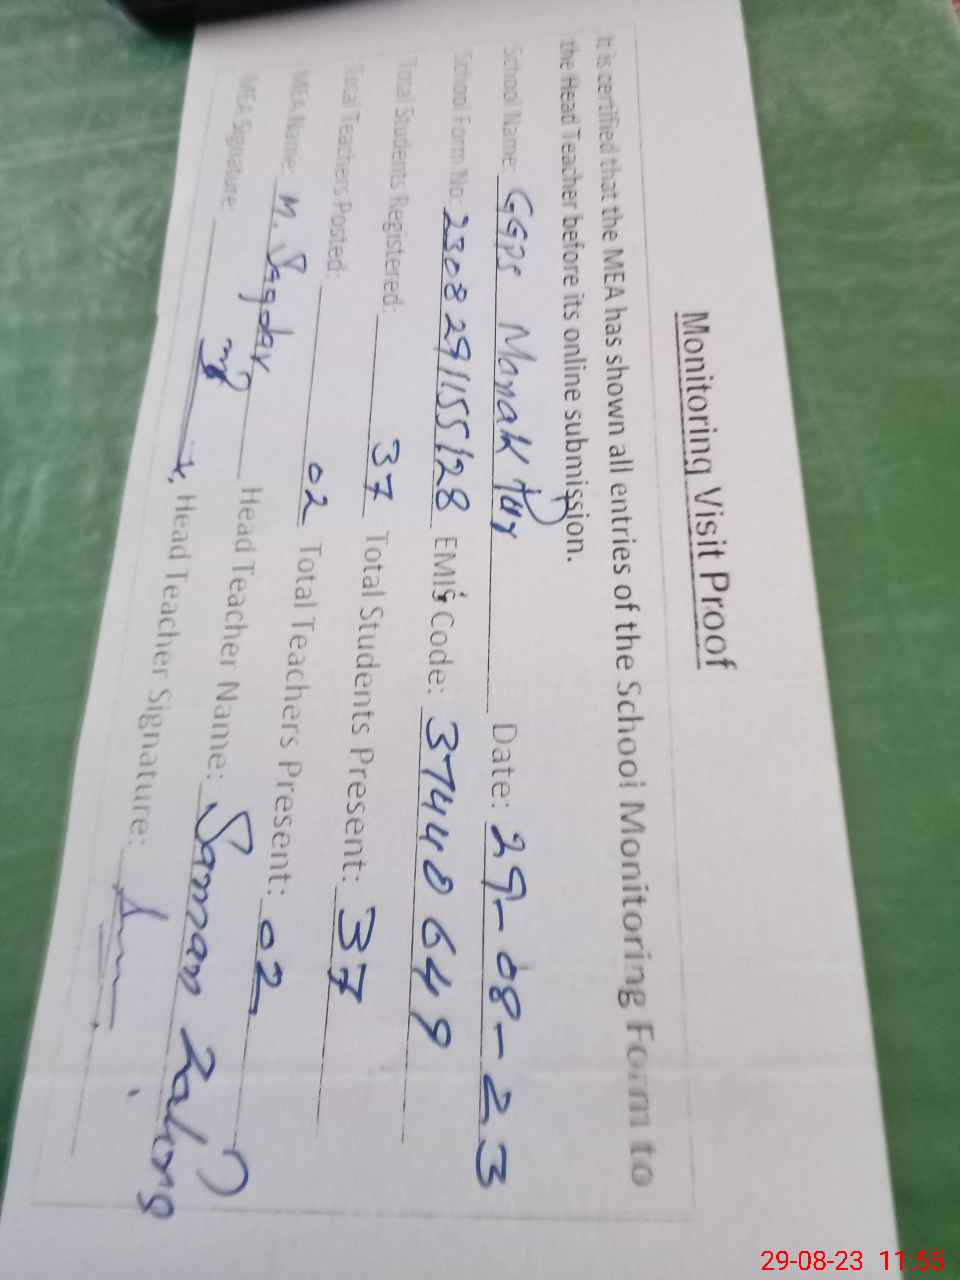 Monitoring Visit Proof
It is certified that the MEA has shown all entries of the School Monitoring Form to
the Head Teacher before its online submission.
School Name: GGPS Manak Pur Date: 29-08-23
School Form No: 2308291155128 EMIS Code: 37440649
Total Students Registered: 37 Total Students Present: 37
Total Teachers Posted: 02 Total Teachers Present: 02
MEA Name: M. Safdar Head Teacher Name: Saman
MEA Signature: Head Teacher Signature:
29-08-23 11:55